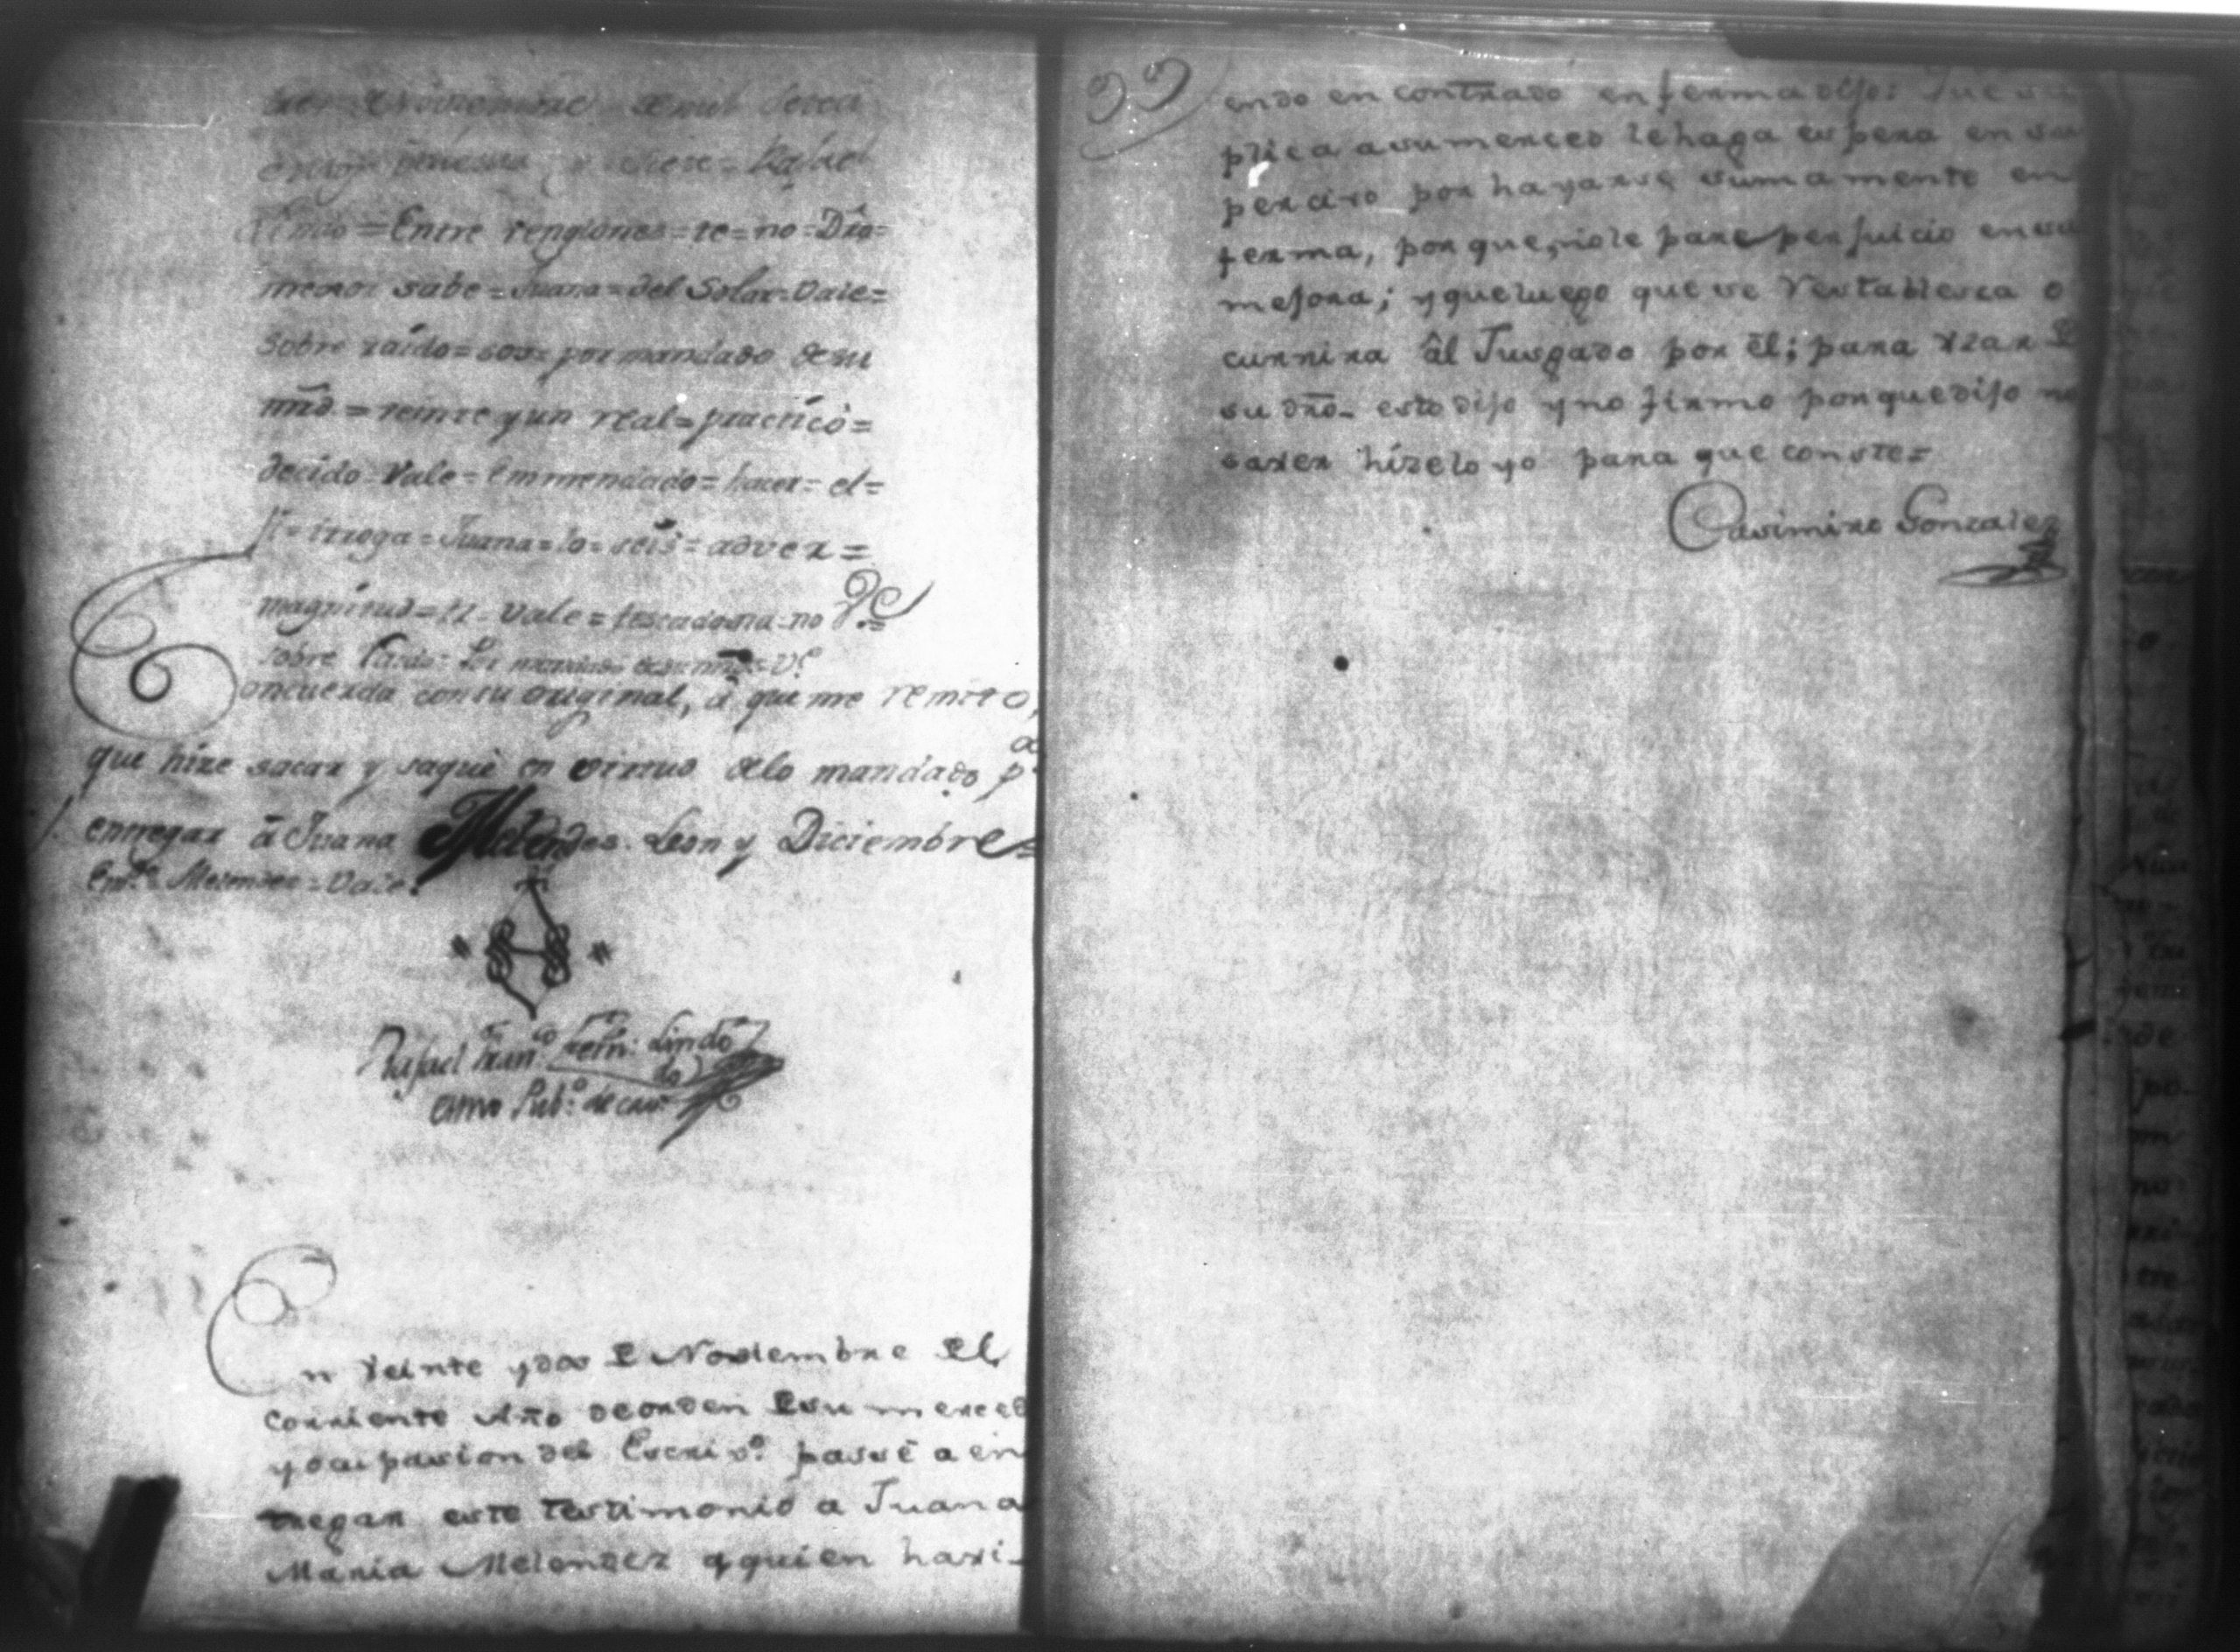 de mil
y siete = Rafael
Lindo = Entre renglones = te = no = Dño=
menor sabe = Juana = del Solar = Vale=
sobre raido = sos = por mandado de su
mrd = veinte y un real = practicó =
decido = Vale = Emmendado = hacer = el =
irroga = Juana = lo = seis = adver =
magnitud = Vale = no Ve=
sobre raido = Por mandado de su mrd = Ve
Concuerda con su original, á que me remito,
que hize sacar y saqué en virtud de lo mandado pa
entregar á Juana Melendes. Leon y Diciembre=
Emdo Melendez = Vale.
Rafael Franco Fern: Lindo
Essno Pubo: de cavdo
En veinte y dos de Noviembre del
corriente Año de orden de su merced
y ocupasion del Escrivo. passé a en
tregar este testimonio a Juana
Maria Melendez a quien havi-
99
endo encontrado enferma dijo: Que su
plica a su merced le haga espera en su
perciso por hayarse sumamente en
ferma, por que, no le pare perjuicio en su
mejora; y que luego que se restablesca o
currira âl Jusgado por êl; para vzar de
su dño. esto dijo y no firmo porque dijo no
saver hízelo yo para que conste=
Casimiro Gonzalez